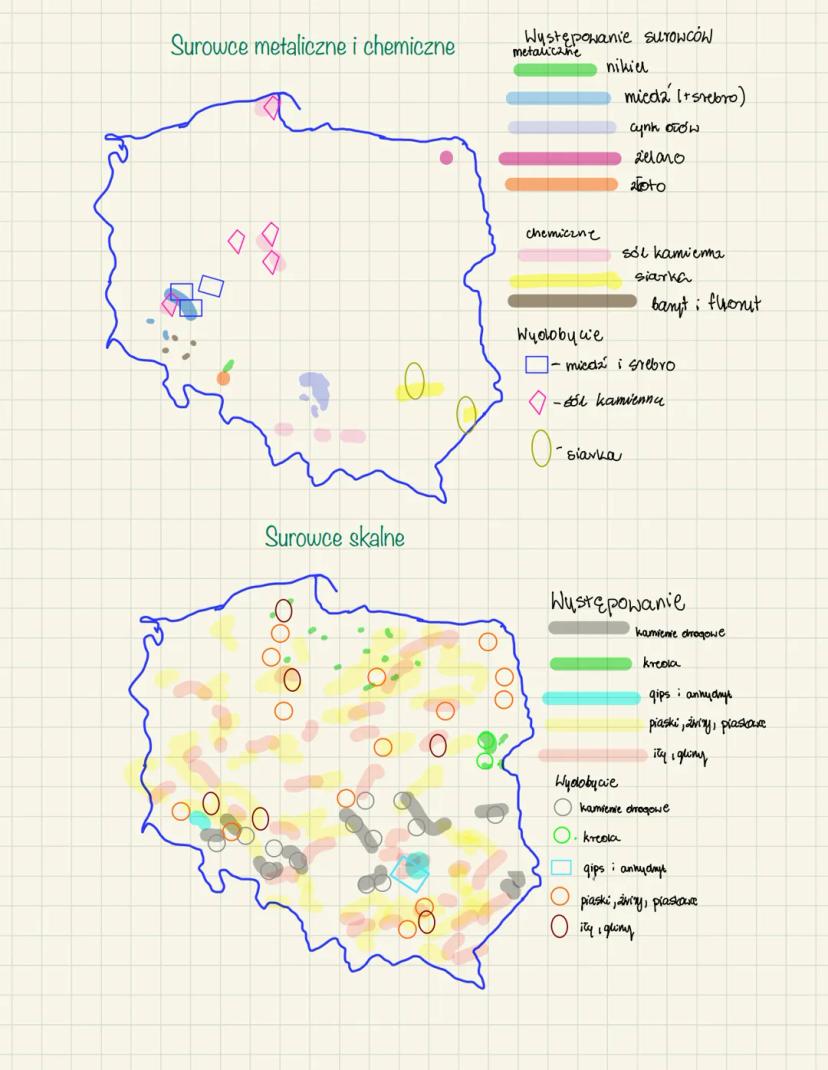 Surowce metaliczne i chemiczne
Występowanie surowców
metaliczne
nikiel
miedź (+srebro)
cynk ołów
żelazo
złoto
chemiczne
sól kamienna
siarka
baryt i fluoryt
Wydobycie
- miedź i srebro
- sól kamienna
- siarka
Surowce skalne
Występowanie
kamienie drogowe
kreda
gips i anhydryt
piaski, żwiry, piaskowce
iły, gliny
Wydobycie
kamienie drogowe
kreda
gips i anhydryt
piaski, żwiry, piaskowce
iły, gliny